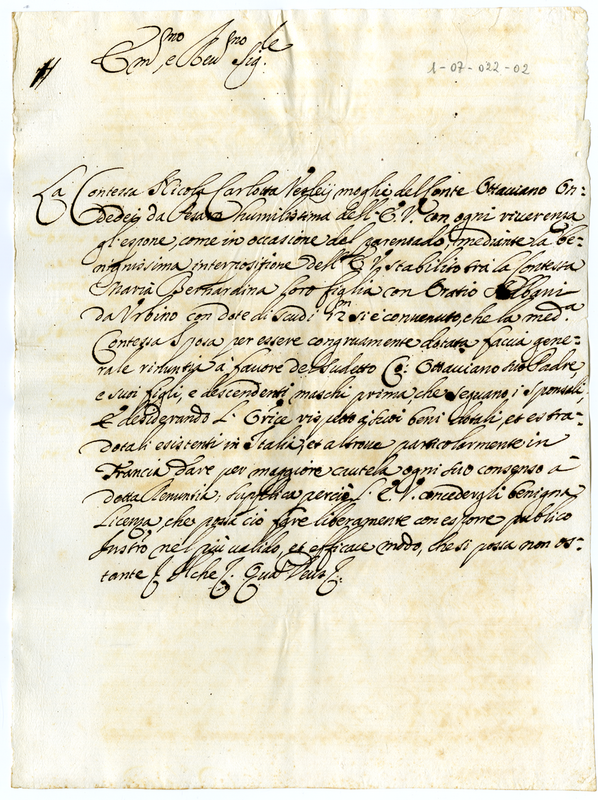 Em.mo e Rev.mo Sig.le
1-07-022-02
La Contessa Nicola Carlotta moglie del Conte Ottaviano On-
dedei da Pesaro humilissima dell'E. V. con ogni riverenza
gl'espone come in occasione del parentado, mediante la be-
nignissima interpositione dell'E. V. stabilito trà la Contessa
Maria Bernardina loro figlia con Oratio Albani
da Urbino con dote di scudi si è convenuto, che la med.a
Contessa Sposa per essere congruamente dotata faccia gene-
rale rinuntia à favore del sudetto Co: Ottaviano suo Padre
e suoi figli, e descendenti maschi prima che seguano i sponsali,
E desiderando l'Orice rispetto à suoi beni dotali, et estra-
dotali esistenti in Italia, et altrove particolarmente in
Francia dare per maggiore cautela ogni suo consenso à
detta Renuntia; supplica perciò l'E. V. concedergli benigna
Licenza, che possa ciò fare liberamente con esporre publico
Instro nel più valido, et efficace modo, che si possa non os-
tante Che